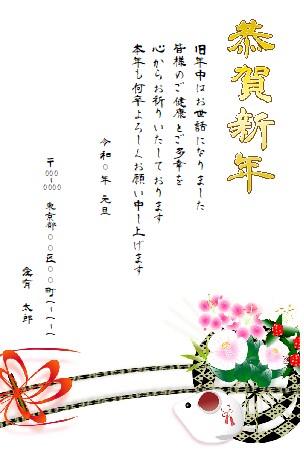 恭賀新年
旧年中はお世話になりました
皆様のご健康とご多幸を
心からお祈りいたしております
本年も何卒よろしくお願い申し上げます
令和○年 元旦
〒○○○-○○○○
東京都○○区○○町~-~-~